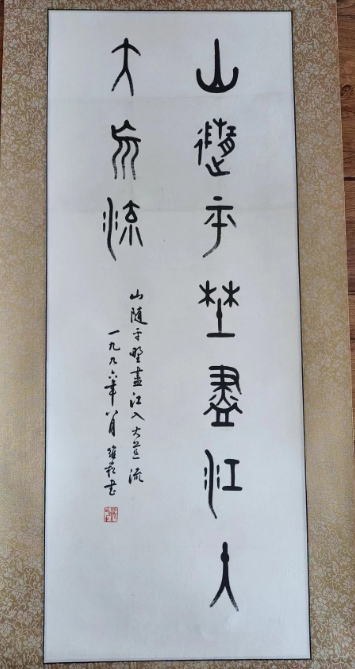 山隨平埜盡江入
大荒流
山隨平野盡江入大荒流
一九九六年八月 書